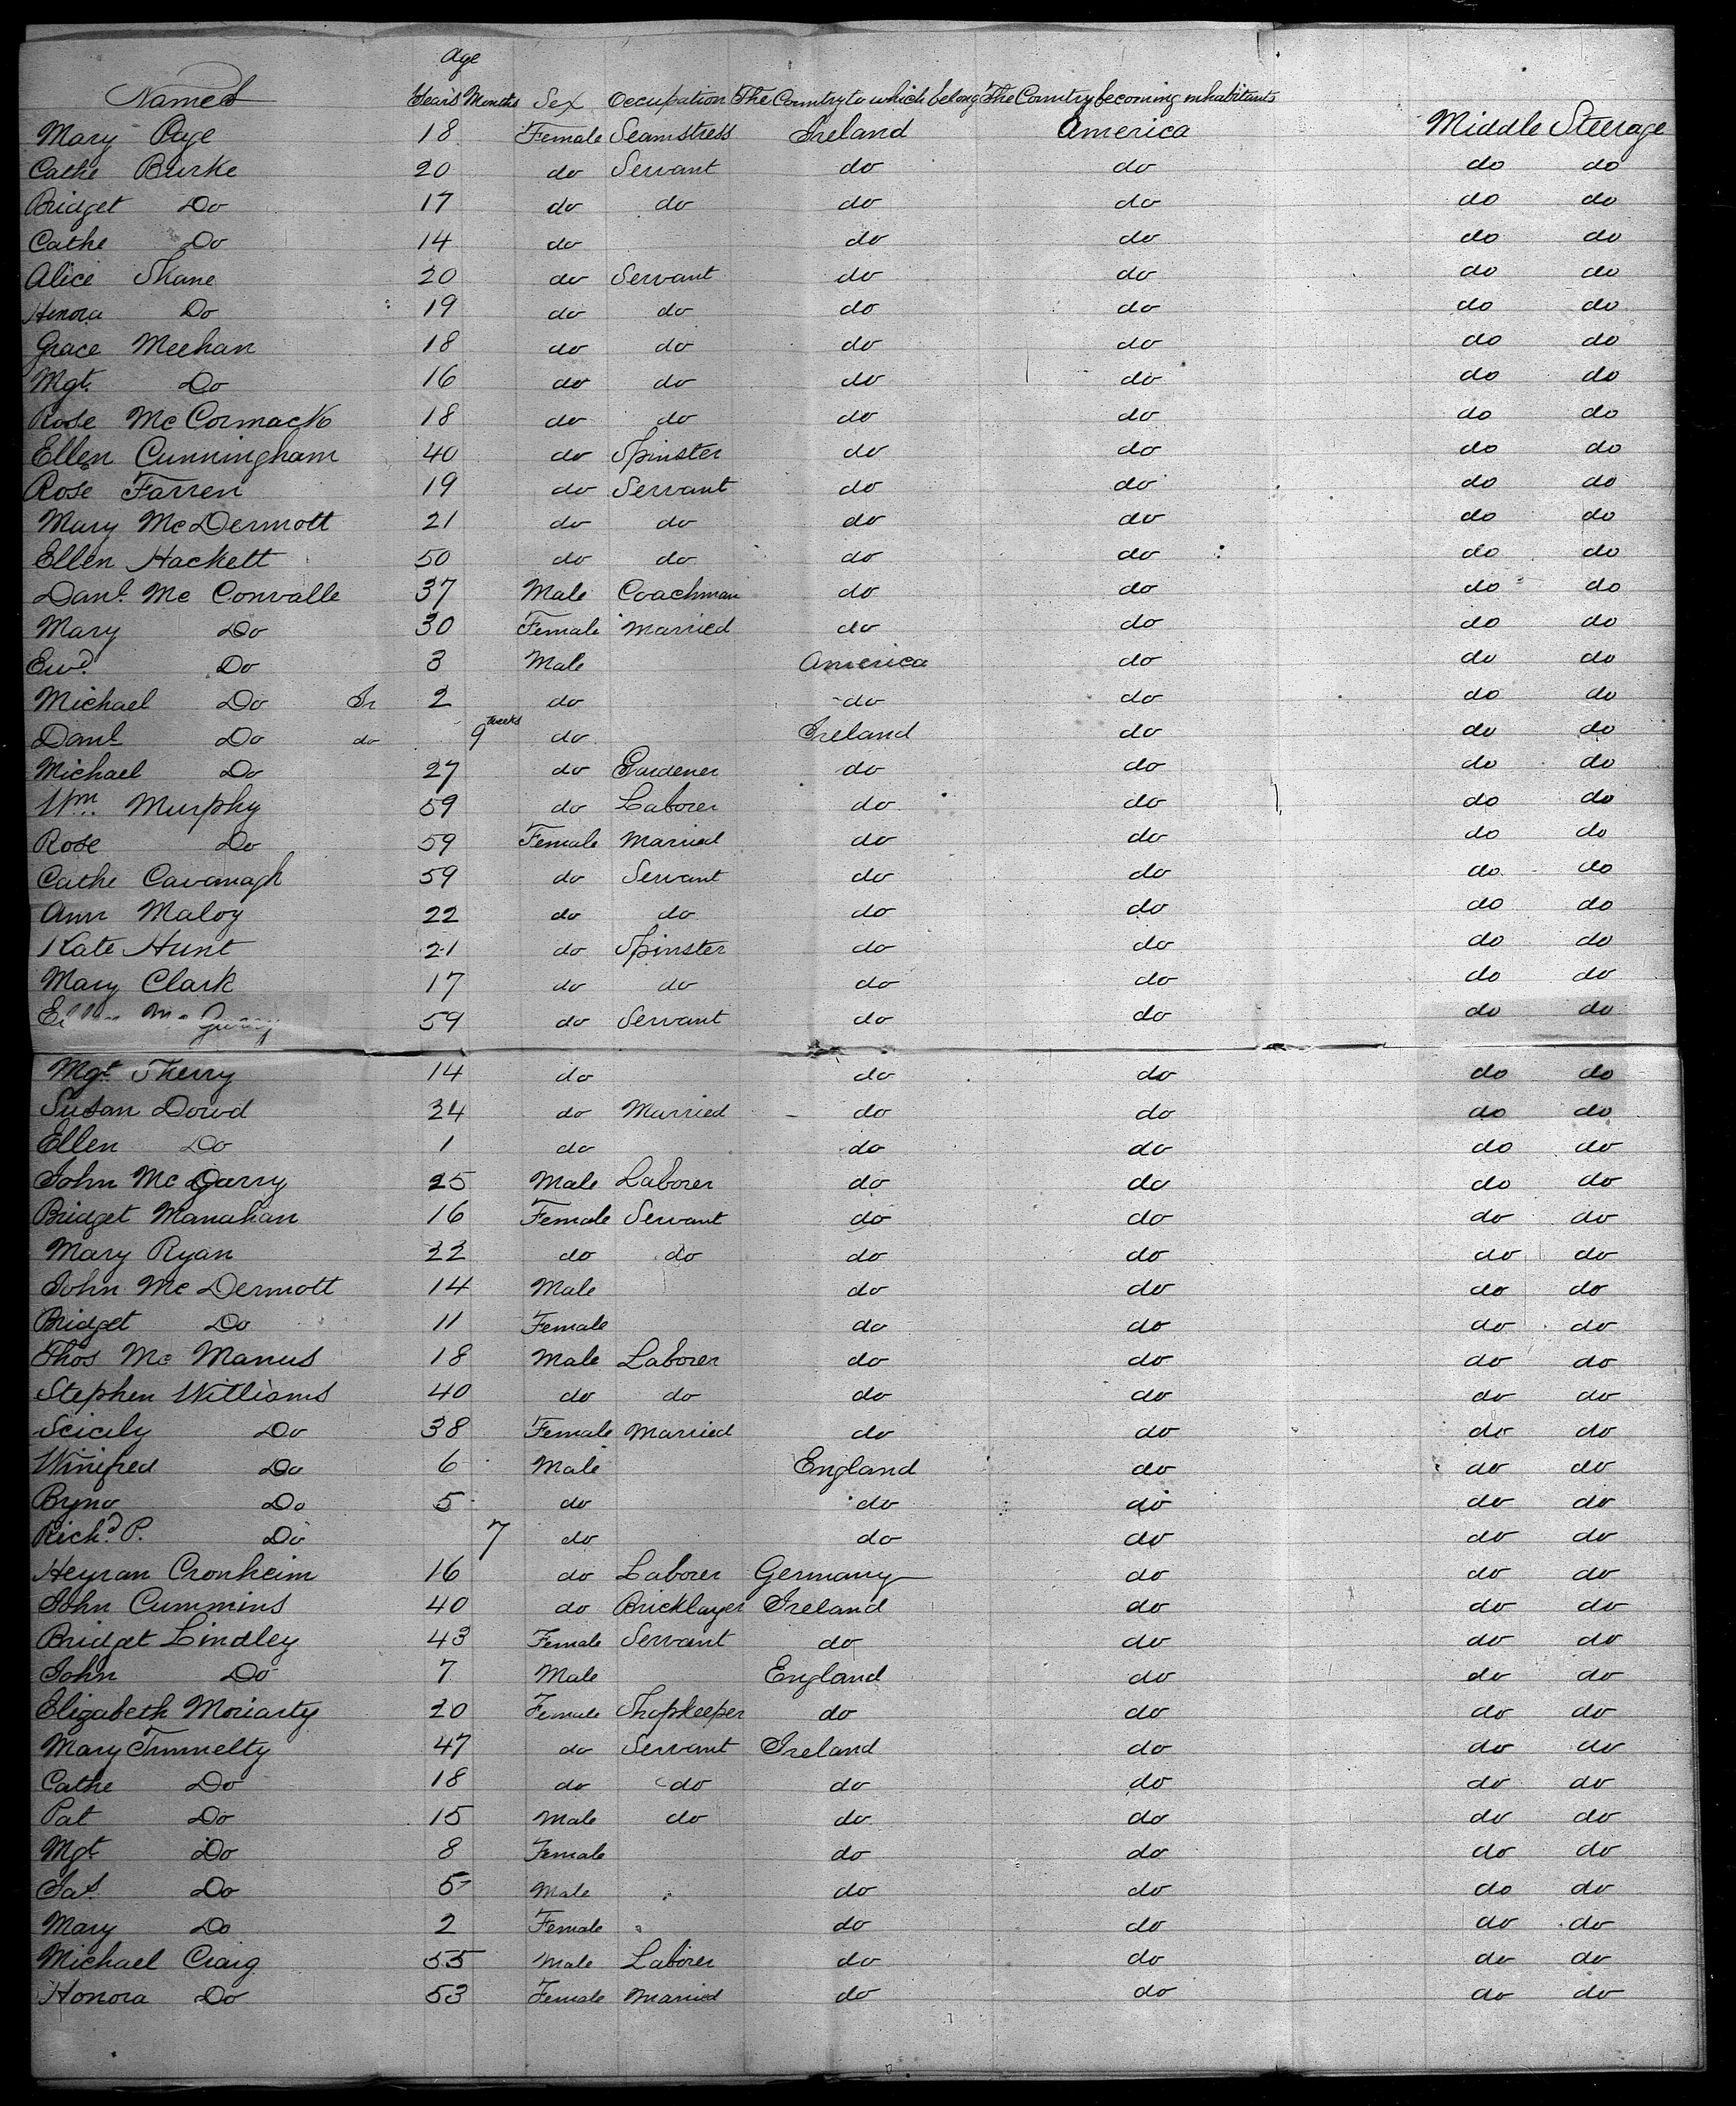 Age
Names Years Months Sex Occupation The Country to which belong The Country becoming inhabitants
Mary Page 18 Female Seamstress Ireland America Middle Steerage
Cathe Burke 20 do Servant do do do do
Bridget Do 17 do do do do do do
Cathe Do 14 do do do do do
Alice Shane 20 do Servant do do do do
Honora Do 19 do do do do do do
Grace Meehan 18 do do do do do do
Mgt. Do 16 do do do do do do
Rose McCormack 18 do do do do do do
Ellen Cunningham 40 do Spinster do do do do
Rose Farren 19 do Servant do do do do
Mary McDermott 21 do do do do do do
Ellen Hackett 50 do do do do do do
Danl. Mc Convalle 37 Male Coachman do do do do
Mary Do 30 Female Married do do do do
Ewd. Do 3 Male America do do do
Michael Do 2 do do do do do
Danl Do do 9 weeks do Ireland do do do
Michael Do 27 do Gardener do do do do
Wm. Murphy 59 do Laborer do do do do
Rose Do 59 Female Married do do do do
Cathe Cavanagh 59 do Servant do do do do
Ann Maloy 22 do do do do do do
Kate Hunt 21 do Spinster do do do do
Mary Clark 17 do do do do do do
59 do Servant do do do do
Mgt. Sherry 14 do do do do do
Susan Dowd 24 do Married do do do do
Ellen Do 1 do do do do do
John McGarry 25 Male Laborer do do do do
Bridget Manahan 16 Female Servant do do do do
Mary Ryan 22 do do do do do do
John McDermott 14 Male do do do do
Bridget Do 11 Female do do do do
Thos McManus 18 Male Laborer do do do do
Stephen Williams 40 do do do do do do
Scicily Do 38 Female Married do do do do
Winifred Do 6 Male England do do do
Byno Do 5 do do do do do
Richd. P. Do 7 do do do do do
Heyran Cronheim 16 do Laborer Germany do do do
John Cummins 40 do Bricklayer Ireland do do do
Bridget Lindley 43 Female Servant do do do do
John Do 7 Male England do do do
Elizabeth Moriarty 20 Female Shopkeeper do do do do
Mary 47 do Servant Ireland do do do
Cathe Do 18 do do do do do do
Pat Do 15 Male do do do do do
Mgt Do 8 Female do do do do
Jas. Do 5 Male do do do do
Mary Do 2 Female do do do do
Michael Craig 55 Male Laborer do do do do
Honora Do 53 Female Married do do do do